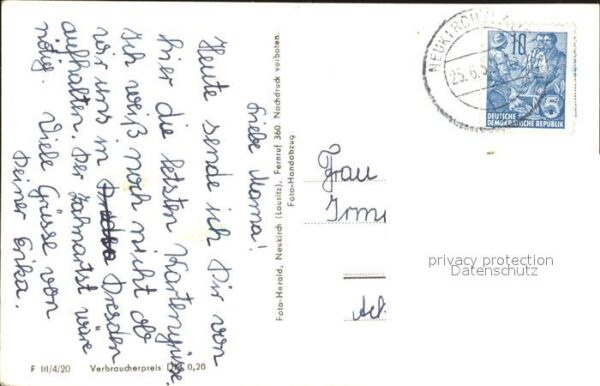 Liebe Mama!
Heute sende ich Dir von
hier die letzten Kartengrüsse.
Ich weiß noch nicht ob
wir uns in Dresden
aufhalten. Der Zahnarzt wäre
nötig. Viele Grüsse von
Deiner Erika.
Foto-Herold, Neukirch (Lausitz), Fernruf 360. Nachdruck verboten.
Foto-Handabzug
F III/4/20 Verbraucherpreis DM 0,20
NEUKIRCH
25.6.5
10
5
DEUTSCHE
DEMOKRATISCHE REPUBLIK
Frau
privacy protection
Datenschutz